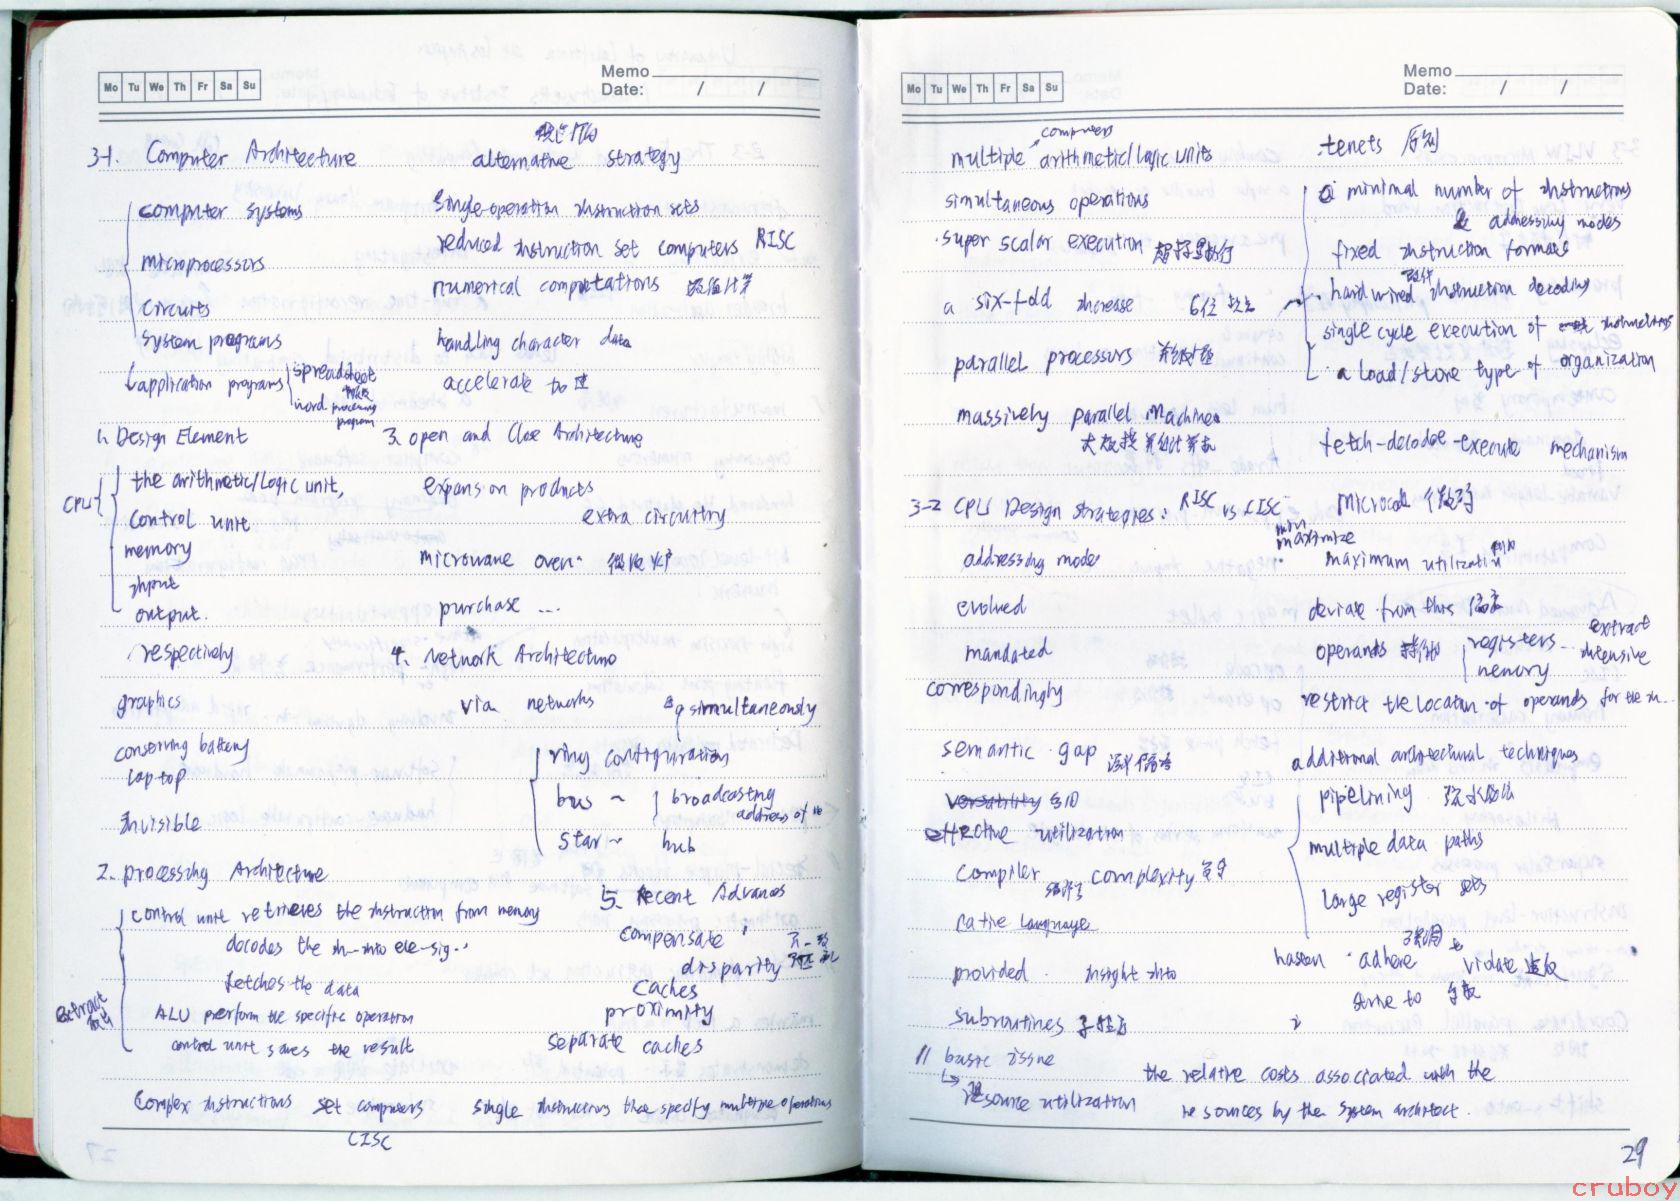 Mo Tu We Th Fr Sa Su
Memo
Date: / /
3-1. Computer Architecture
computer systems
microprocessors
circuits
system programs
application programs
spreadsheet
word processing program
1. Design Element
CPU
the arithmetic/logic unit,
control unit
memory
input
output.
respectively
graphics
conserving battery
laptop
invisible
2. processing Architecture
control unit retrieves the instruction from memory
decodes the in- into ele-sig..
fetches the data
Extract
ALU perform the specific operation
control unit saves the result
Complex instructions set computers
CISC
alternative strategy
single-operation instruction sets
reduced instruction set computers RISC
numerical computations 数值计算
handling character data
accelerate 加速
3. open and Close Architecture
expansion products
extra circuitry
microwave oven. 微波炉
purchase ...
4. Network Architecture
via networks
simultaneously
ring configuration
bus ~
broadcasting
address of
star ~ hub
5. Recent Advances
compensate
disparity 不一致
caches
proximity
separate caches
single instructions that specify multiple operations
Mo Tu We Th Fr Sa Su
Memo
Date: / /
computers
multiple arithmetic/logic units
simultaneous operations
super scalar execution 超标量执行
a six-fold increase 6倍
parallel processors
massively parallel Machines
大规模并行计算机
3-2 CPU Design strategies: RISC vs CISC
addressing mode
evolved
mandated
correspondingly
semantic gap
versatility
effective utilization
compiler complexity
native language
provided insight into
subroutines 子程序
11 basic issue
resource utilization
tenets 原则
a minimal number of instructions
& addressing modes
fixed instruction formats
hardwired instruction decoding
single cycle execution of instructions
a load/store type of organization
fetch-decode-execute mechanism
Microcode 微码
min
maximize
maximum utilization 利用
deviate from this
operands
registers
memory
extract
intensive
restrict the location of operands for the in...
additional architectural techniques
pipelining
multiple data paths
large register sets
hasten adhere violate 违反
strive to
the relative costs associated with the
resources by the system architect.
29
cruboy